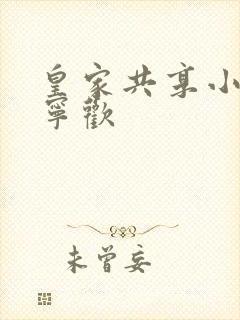 皇家共享小
寧歡
未曾妄